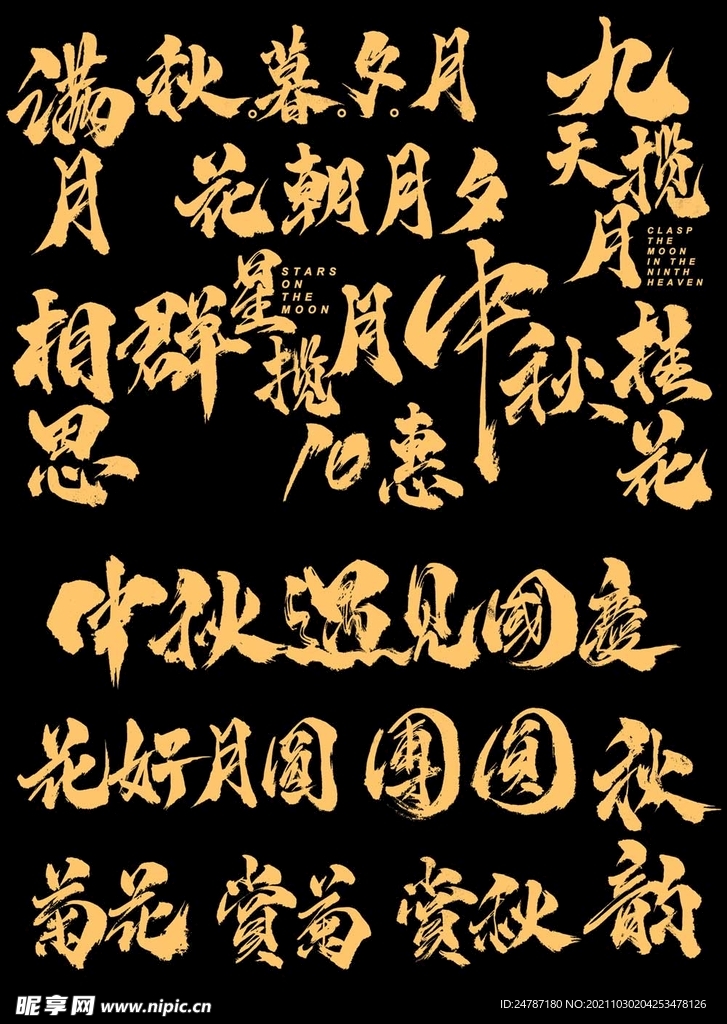 满月
秋。暮。夕。月
九天揽月
CLASP
THE
MOON
IN THE
NINTH
HEAVEN
花朝月夕
相思
群星揽月
STARS
ON
THE
MOON
中秋
桂花
10惠
中秋遇见國慶
花好月圓
團圓
秋韵
菊花
赏菊
赏秋
昵享网 www.nipic.cn
ID:24787180 NO:20211030204253478126